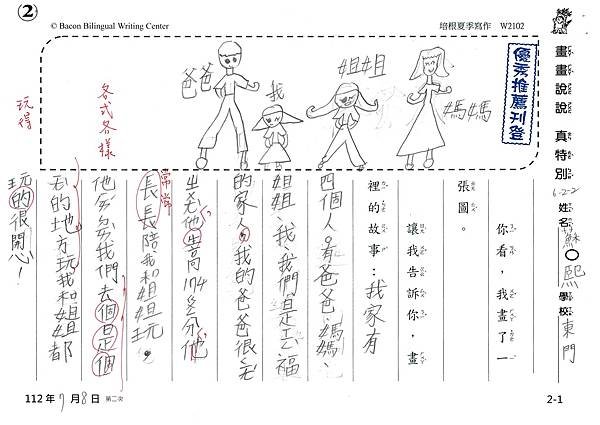 ②
© Bacon Bilingual Writing Center
培根夏季寫作 W2102
畫畫說說 真特別
6-2-2
姓名 蘇○熙 學校 東門
優秀推薦刊登
媽媽
姐姐
我
爸爸
你看，我畫了一
張圖。
讓我告訴你，畫
裡的故事：我家有
四個人有爸爸、媽媽、
姐姐、我，我們是幸福
的家人，我的爸爸很
他 高174公分他
長長陪我和姐姐玩，
常常
他 我們去個是個
各式各樣
的地方玩我和姐姐都
玩的很開心！
玩得
112年7月8日 第二次
2-1